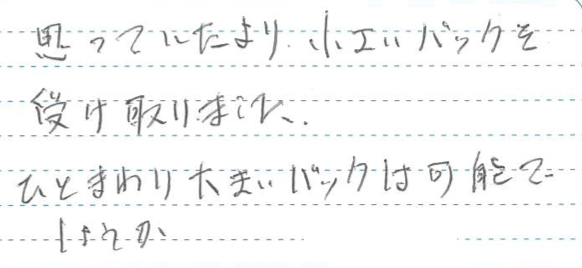 思っていたより小さいバックを
受け取りました.
ひとまわり大きいバックは可能で
しょうか